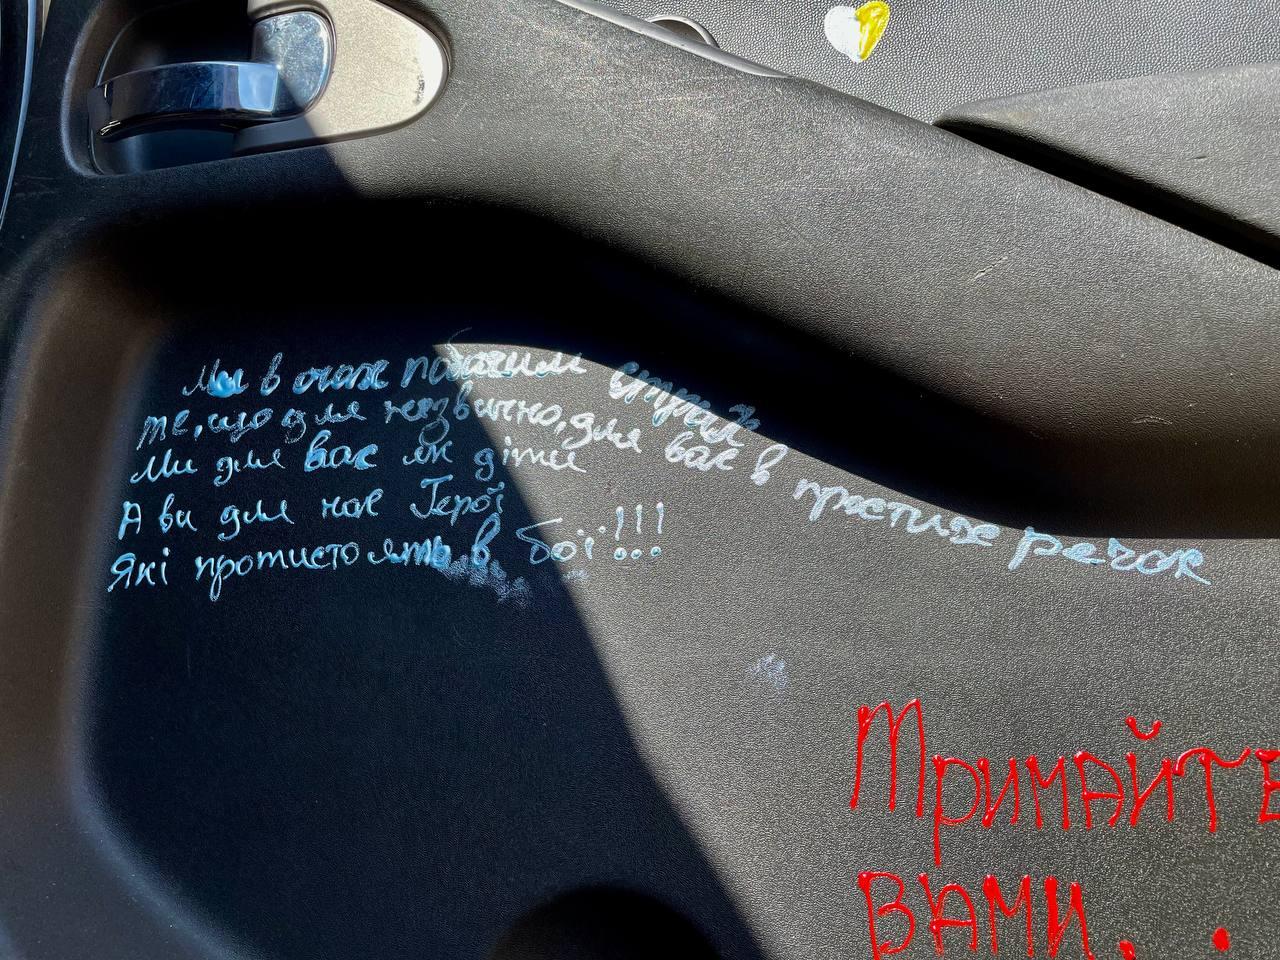 Ми в очах побачили страх
те, що для незвично, для вас в простих речах
Ми для вас як діти
А ви для нас Герої
Які протистоять в бої!!!
Тримайте
вами..